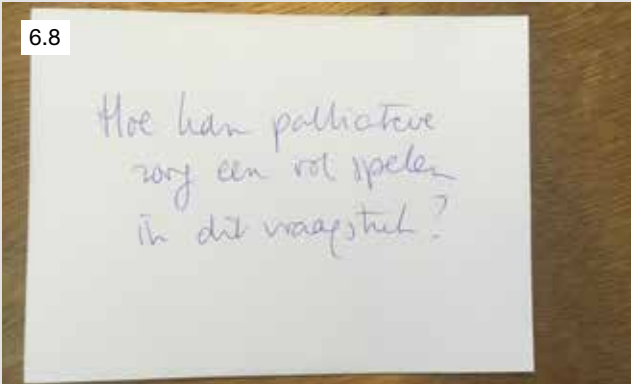 6.8
Hoe kan palliatieve
zorg een rol spelen
in dit vraagstuk?